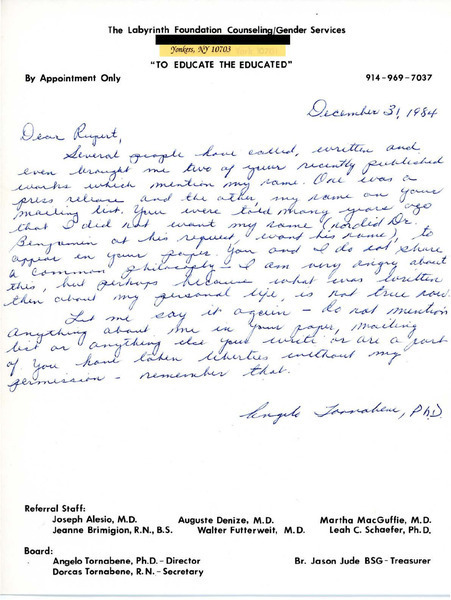 The Labyrinth Foundation Counseling/Gender Services
Yonkers, NY 10703
"TO EDUCATE THE EDUCATED"
By Appointment Only 914-969-7037
December 31, 1984
Dear Rupert,
Several people have called, written and
even brought me two of your recently published
works which mention my name. One was a
press release and the other, my name on your
mailing list. You were told many years ago
that I did not want my name (nor did Dr.
Benjamin at his request want his name), to
appear in your paper. You and I do not share
a common philosophy - I am very angry about
this, but perhaps because what was written
then about my personal life, is not true now.
Let me say it again - do not mention
anything about me in your paper, mailing
list or anything else you write or are a part
of. You have taken liberties without my
permission - remember that.
Angelo Tornabene, Ph.D.
Referral Staff:
Joseph Alesio, M.D. Auguste Denize, M.D. Martha MacGuffie, M.D.
Jeanne Brimigion, R.N., B.S. Walter Futterweit, M.D. Leah C. Schaefer, Ph.D.
Board:
Angelo Tornabene, Ph.D. - Director Br. Jason Jude BSG - Treasurer
Dorcas Tornabene, R.N. - Secretary